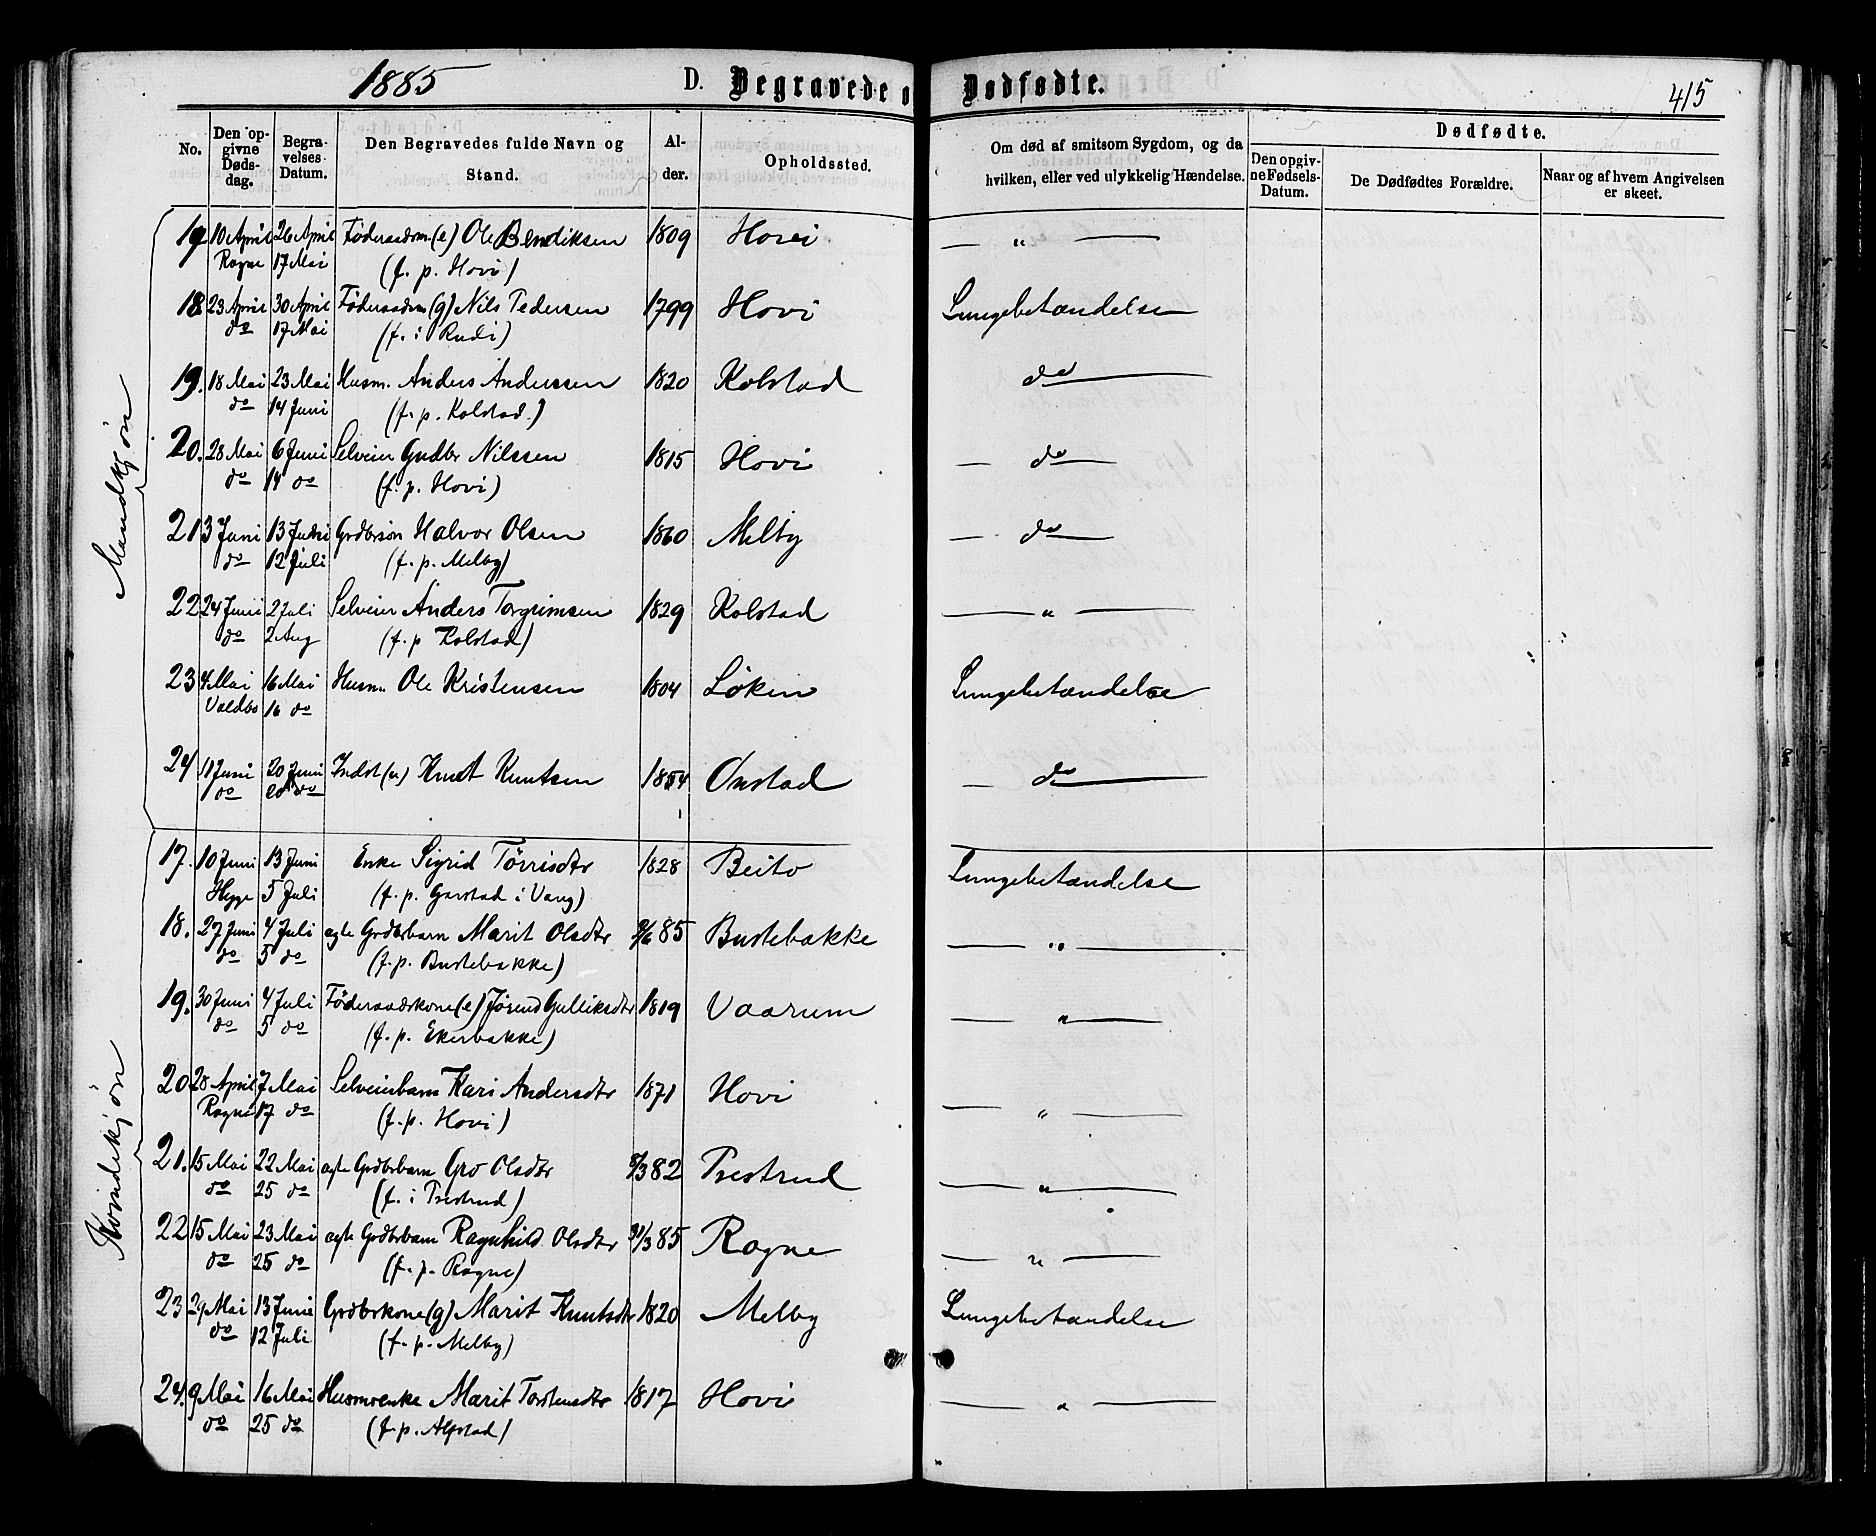 1885 D. Begravede o Dødfødte. 415
No.
Den opgivne Dødsdag.
Begravelses Datum.
Den Begravedes fulde Navn og Stand.
Alder.
Opholdssted.
Om død af smitsom Sygdom, og da hvilken, eller ved ulykkelig Hændelse.
Dødfødte.
Den opgivne Fødsels-Datum.
De Dødfødtes Forældre.
Naar og af hvem Angivelsen er skeet.
Mandkjøn
17 10 April 26 April Føderaadsm (e) Ole Bendiksen 1809 Hovi — " —
Rogne 17 Mai (f. p. Hovi)
18. 23 April 30 April Føderaadsm (g) Nils Pedersen 1799 Hovi Lungebetændelse
do 17 Mai (f. i Rudi)
19. 18 Mai 23 Mai Husm. Anders Anderssen 1820 Kolstad do —
do 14 Juni (f. p. Kolstad.)
20. 28 Mai 6 Juni Selveier Gudbr Nilssen 1815 Hovi — do —
do 14 do (f. p. Hovi)
21 3 Juni 13 Juni Grdbrsøn Halvor Olsen 1860 Melby — do —
do 12 Juli (f. p. Melby)
22 24 Juni 2 Juli Selveier Anders Torgrimsen 1829 Kolstad — " —
do 2 Aug (f. p Kolstad)
23 4 Mai 16 Mai Husm. Ole Kristensen 1804 Løkin Lungebetændelse
Voldbo 16 do
24 11 Juni 20 Juni Indst (u) Knut Knutsen 1854 Onstad — do —
do 20 do
Kvindekjøn
17. 10 Juni 13 Juni Enke Sigrid Tørrisdtr 1828 Beito Lungebetændelse
Hegge 5 Juli (f. p. Gavstad i Vang)
18. 27 Juni 4 Juli ægte Grdbrbarn Marit Olsdtr 85 Bustebakke — " —
do 5 do (f. p. Bustebakke)
19. 30 Juni 4 Juli Føderaadskone (e) Jørend Gulliksdtr 1819 Vaarum — " —
do 5 do (f. p. Ekerbakke)
20 28 April 7 Mai Selveierbarn Kari Andersdtr 1871 Hovi — " —
Rogne 17 do (f. p. Hovi)
21. 15 Mai 22 Mai ægte Grdbrbarn Gro Olsdtr 8/3 82 Prestrud — " —
do 25 do (f. i Prestrud)
22 15 Mai 23 Mai ægte Grdbrbarn Ragnhild Olsdtr 31/3 85 Rogne — " —
do 25 do (f. p. Rogne)
23 29 Mai 13 Juni Grdbrkone (g) Marit Knutsdtr 1820 Melby Lungebetændelse
do 12 Juli (f. p. Melby)
24. 9 Mai 16 Mai Husmenke Marit Torstensdtr 1817 Hovi — " —
do 25 do (f. p. Alfstad)